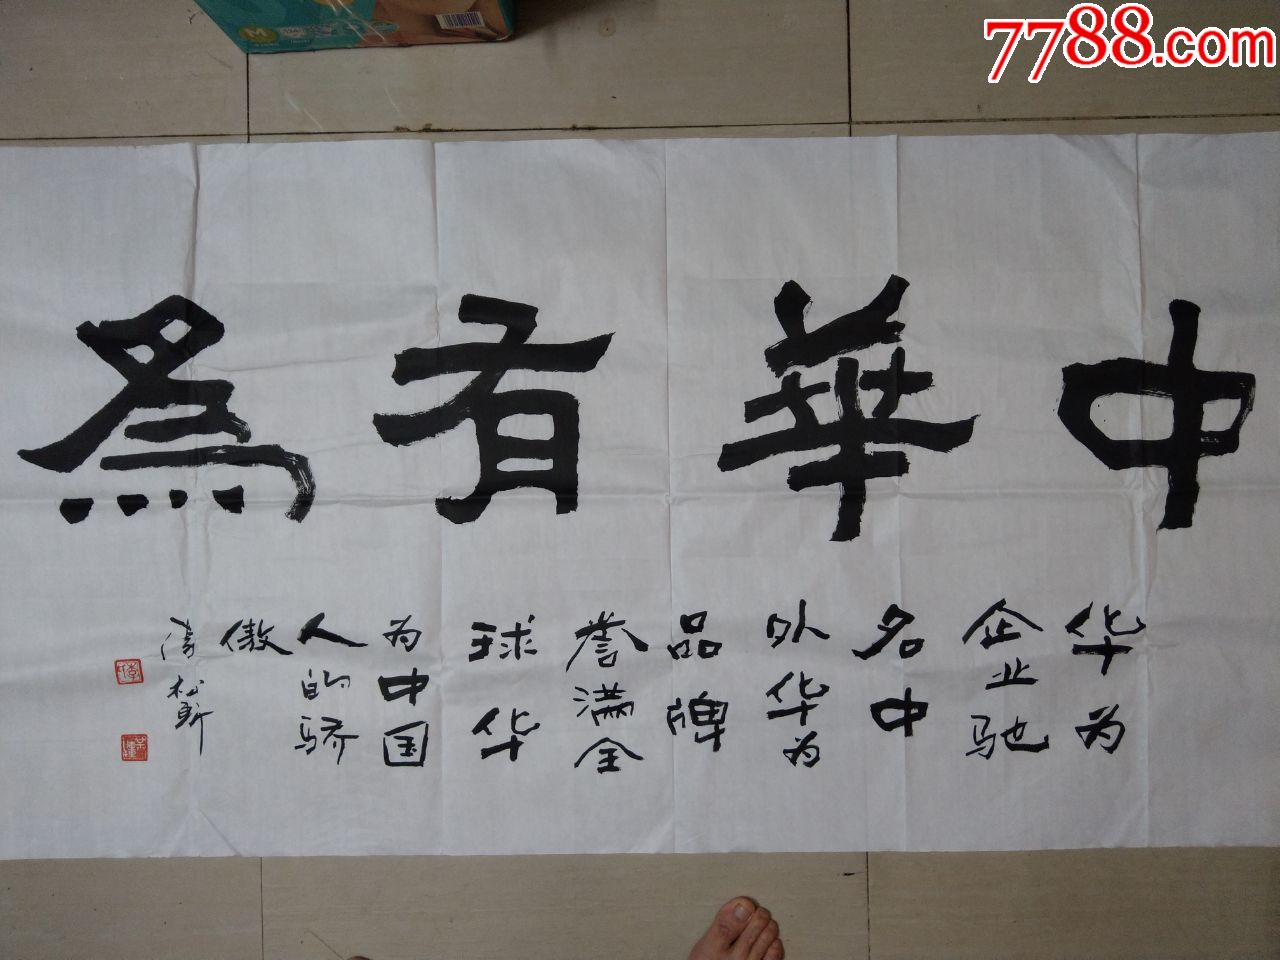 7788.com
中華有為
华为
企业驰
名中
外华为
品牌
誉满全
球华
为中国
人的骄
傲
M